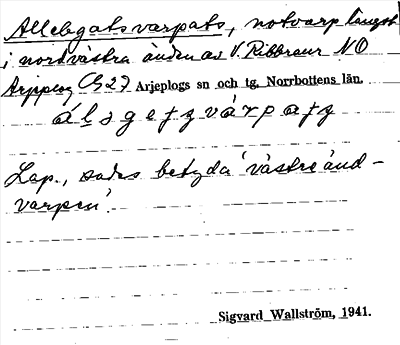 Allelegatsvarpats, notvarp längst
i nordvästra änden av V. Ribbraur NO
Arjeplog Ch 27 Arjeplogs sn och tg, Norrbottens län.
Lap., sades betyda 'västre änd-
varpen'.
Sigvard Wallström, 1941.